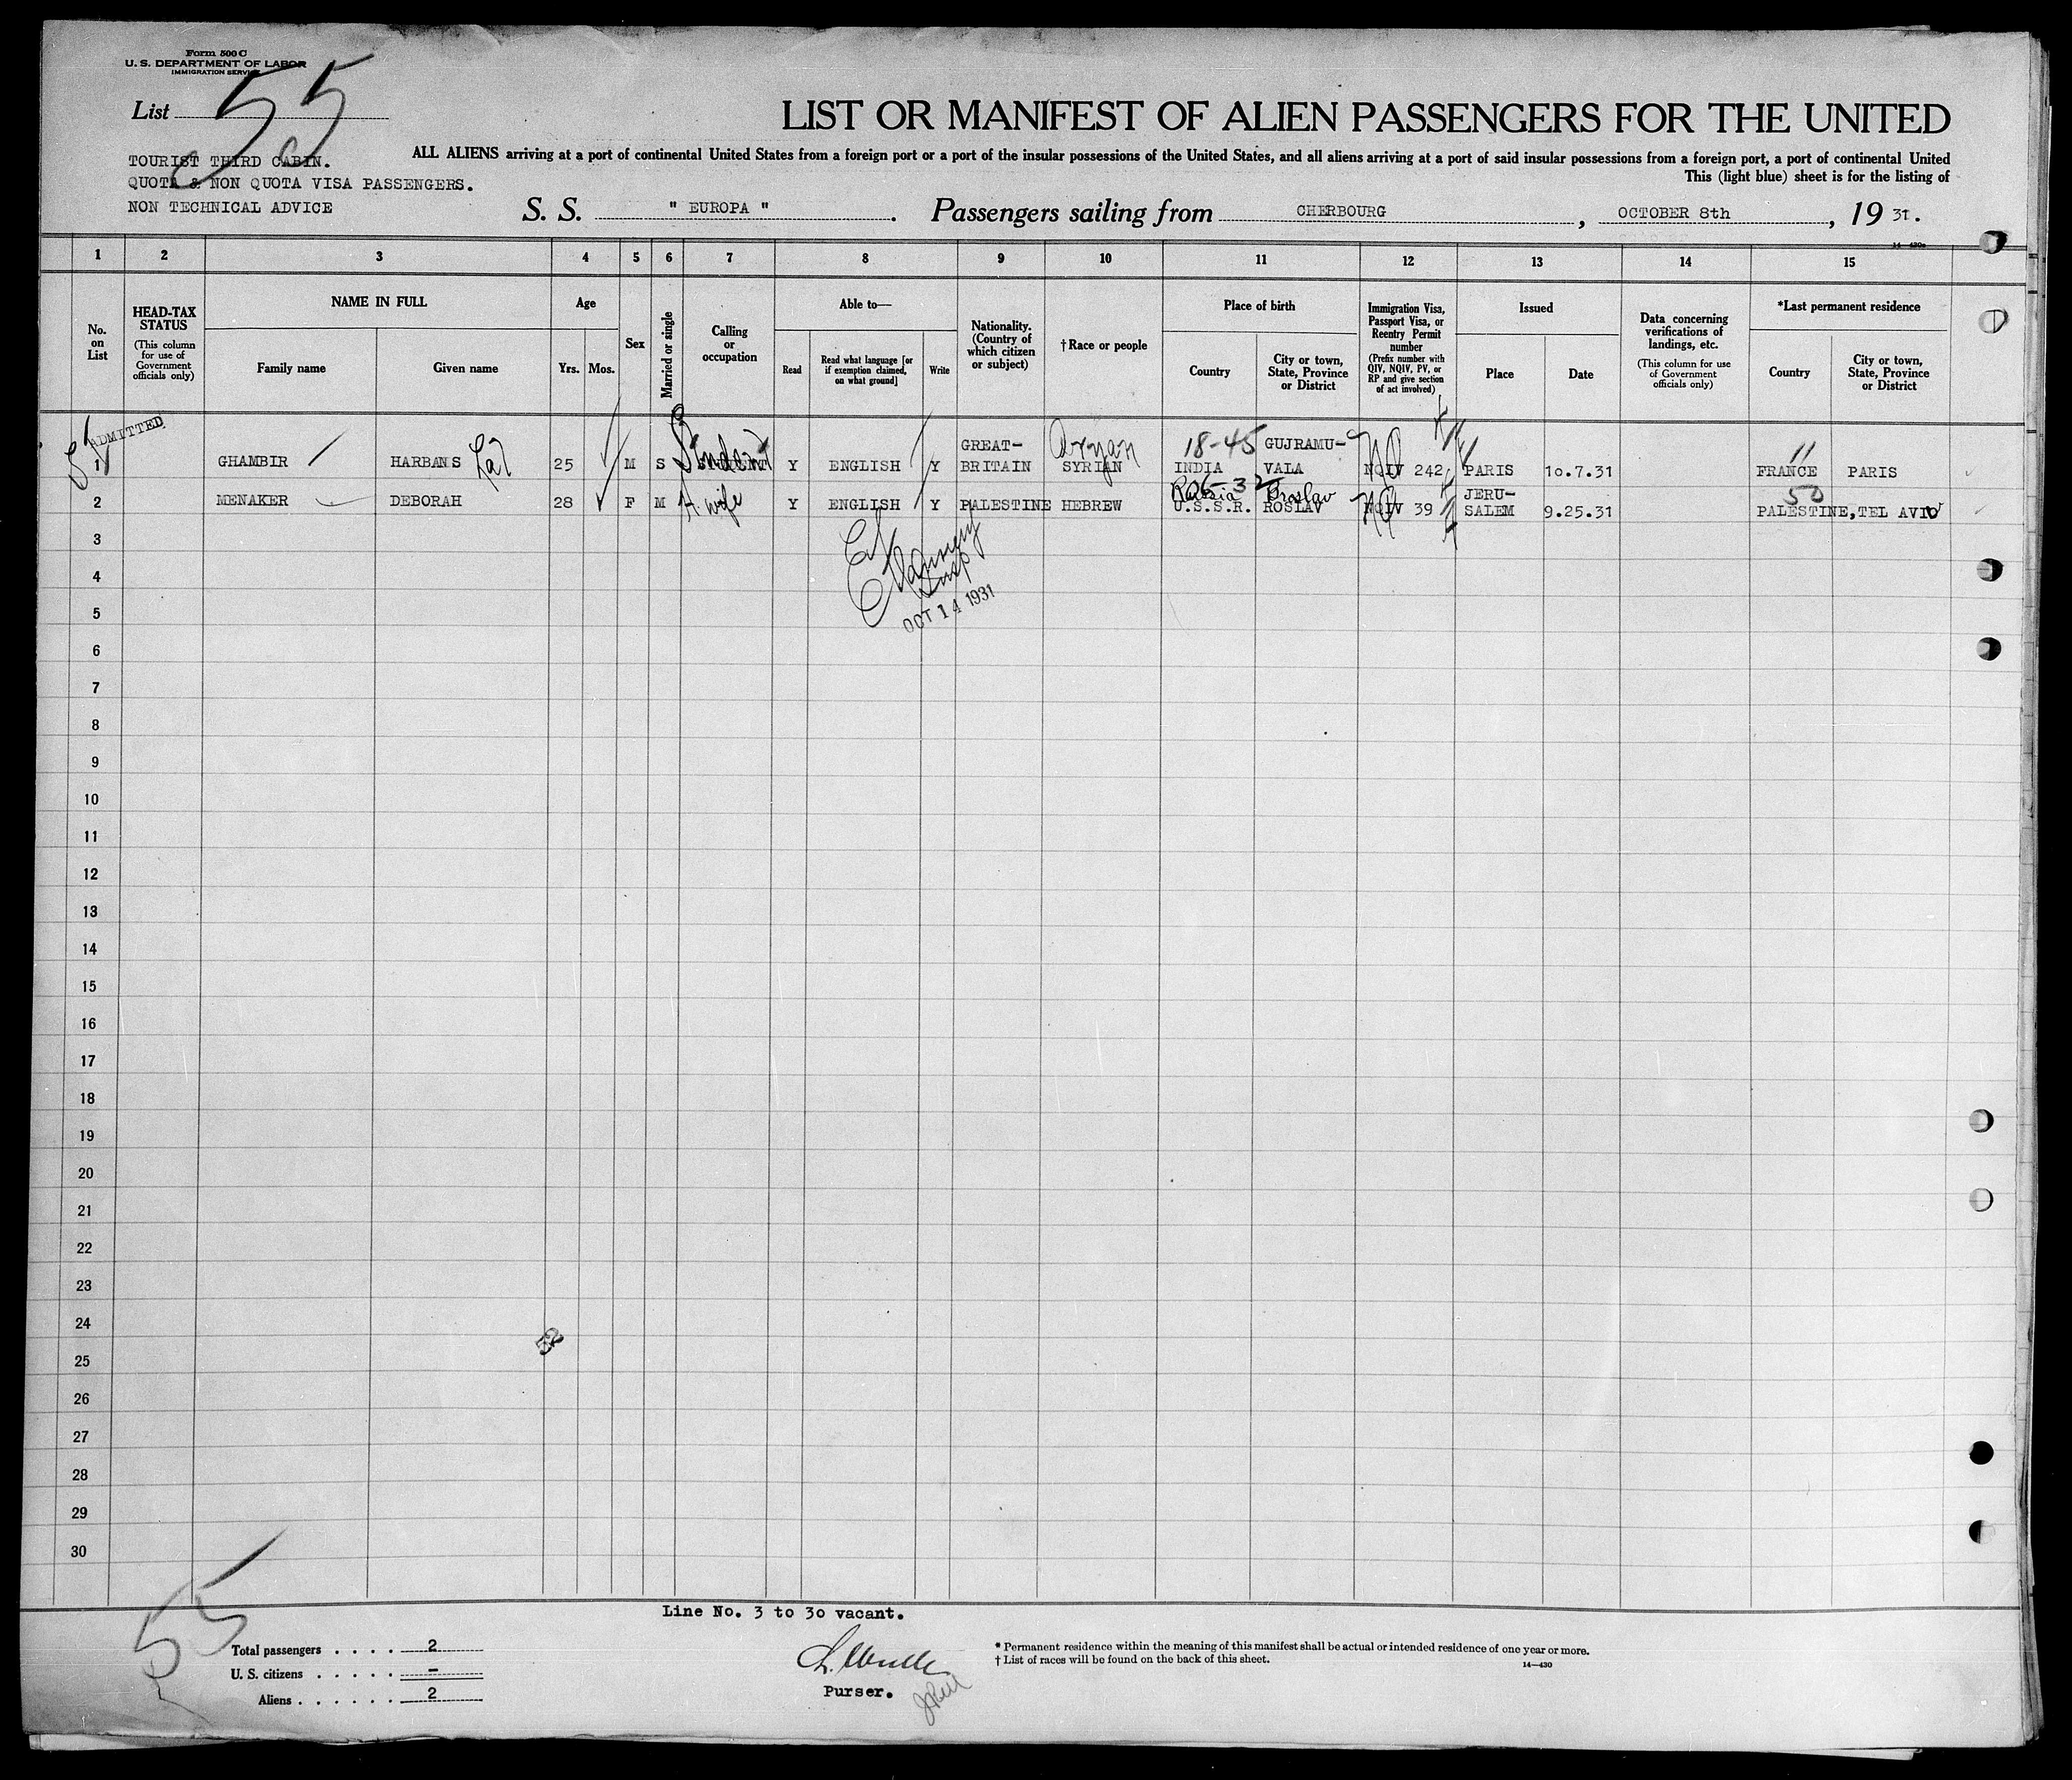 Form 500 C
U. S. DEPARTMENT OF LABOR
IMMIGRATION SERVICE
List 55
LIST OR MANIFEST OF ALIEN PASSENGERS FOR THE UNITED
TOURIST THIRD CABIN.
QUOTA & NON QUOTA VISA PASSENGERS.
NON TECHNICAL ADVICE
ALL ALIENS arriving at a port of continental United States from a foreign port or a port of the insular possessions of the United States, and all aliens arriving at a port of said insular possessions from a foreign port, a port of continental United
This (light blue) sheet is for the listing of
S. S. " EUROPA " . Passengers sailing from CHERBOURG , OCTOBER 8th , 19 31.
1 2 3 4 5 6 7 8 9 10 11 12 13 14 15
No. on List
HEAD-TAX STATUS
(This column for use of Government officials only)
NAME IN FULL
Family name
Given name
Age
Yrs.
Mos.
Sex
Married or single
Calling or occupation
Able to—
Read
Read what language [or if exemption claimed, on what ground]
Write
Nationality. (Country of which citizen or subject)
†Race or people
Place of birth
Country
City or town, State, Province or District
Immigration Visa, Passport Visa, or Reentry Permit number
(Prefix number with QIV, NQIV, PV, or RP and give section of act involved)
Issued
Place
Date
Data concerning verifications of landings, etc.
(This column for use of Government officials only)
*Last permanent residence
Country
City or town, State, Province or District
ADMITTED
GREAT- Aryan 18-45 GUJRAMU- NQ 11
1 GHAMBIR HARBANS Lal 25 M S Student Y ENGLISH Y BRITAIN SYRIAN INDIA VALA NQIV 242 PARIS 10.7.31 FRANCE PARIS
Russia 06-32 Broslav NQ JERU- 50
2 MENAKER DEBORAH 28 F M H. wife Y ENGLISH Y PALESTINE HEBREW U.S.S.R. ROSLAV NQIV 39 SALEM 9.25.31 PALESTINE, TEL AVIV
3
Insp
4
5
OCT 14 1931
6
7
8
9
10
11
12
13
14
15
16
17
18
19
20
21
22
23
24
25
26
27
28
29
30
Line No. 3 to 30 vacant.
55
Total passengers . . . . 2
U. S. citizens . . . . . –
Aliens . . . . . . 2
Purser.
* Permanent residence within the meaning of this manifest shall be actual or intended residence of one year or more.
† List of races will be found on the back of this sheet.
14—430